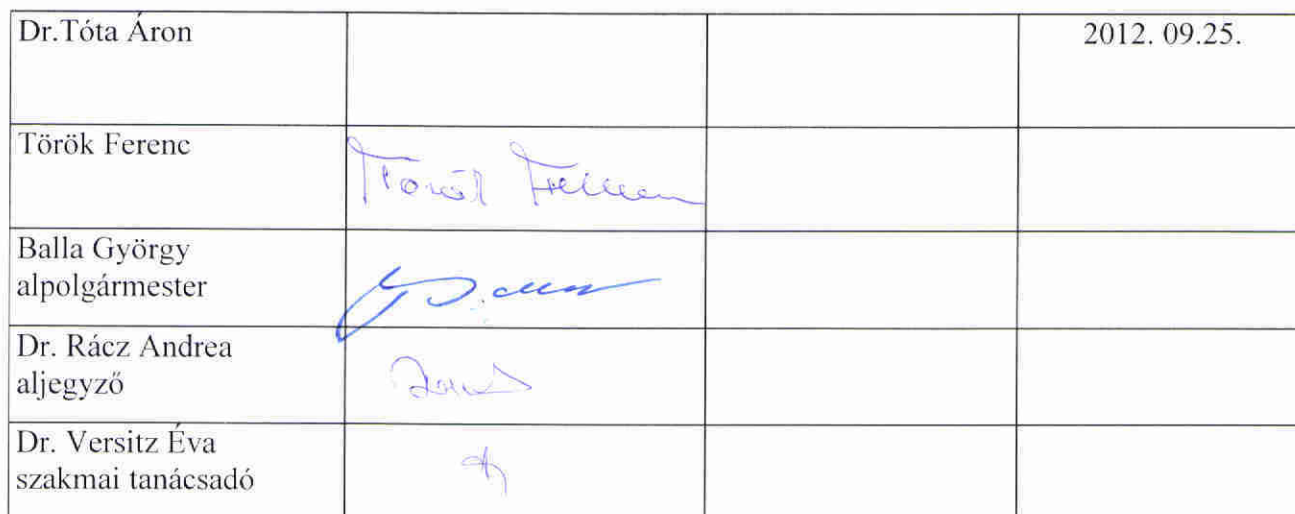 Dr.Tóta Áron 2012. 09.25.
Török Ferenc
Török Ferenc
Balla György
alpolgármester
Dr. Rácz Andrea
aljegyző
Dr. Versitz Éva
szakmai tanácsadó